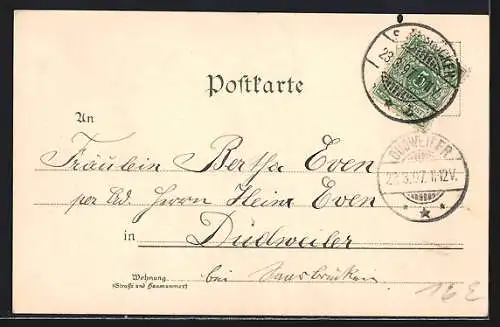 Postkarte
5
An
Fräulein Bertha Even
per Ad. Herrn Heinr Even
DUDWEILER
23.3.97. 11-12V.
in Dudweiler
Wohnung
(Straße und Hausnummer)
bei Saarbrücken